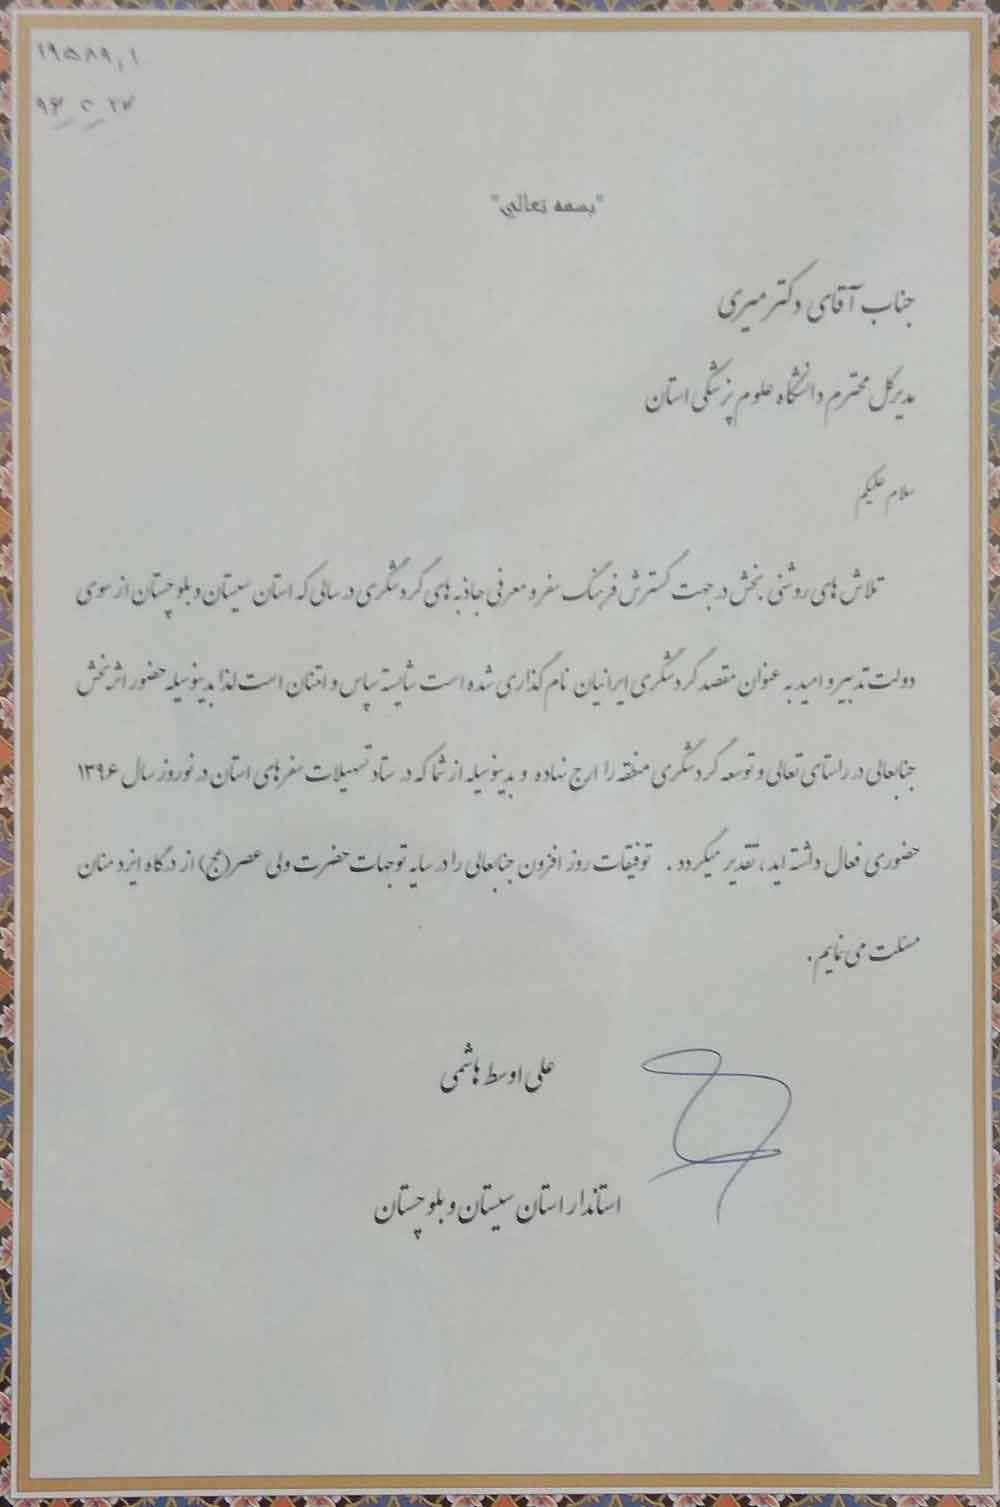 ۱۹۵۸۹,۱
۹۶_۲_۲۷
"بسمه تعالی"
جناب آقای دکتر میری
مدیرکل محترم دانشگاه علوم پزشکی استان
سلام علیکم
تلاش های روشنی بخش در جهت گسترش فرهنگ سفر و معرفی جاذبه های گردشگری در سالی که استان سیستان و بلوچستان از سوی
دولت تدبیر و امید به عنوان مقصد گردشگری ایرانیان نام گذاری شده است شایسته سپاس و امتنان است لذا بدینوسیله حضور اثربخش
جنابعالی در راستای تعالی و توسعه گردشگری منطقه را ارج نهاده و بدینوسیله از شما که در ستاد تسهیلات سفرهای استان در نوروز سال ۱۳۹۶
حضوری فعال داشته اید، تقدیر میگردد. توفیقات روز افزون جنابعالی را در سایه توجهات حضرت ولی عصر(عج) از درگاه ایزد منان
مسئلت می نمایم.
علی اوسط هاشمی
استاندار استان سیستان و بلوچستان